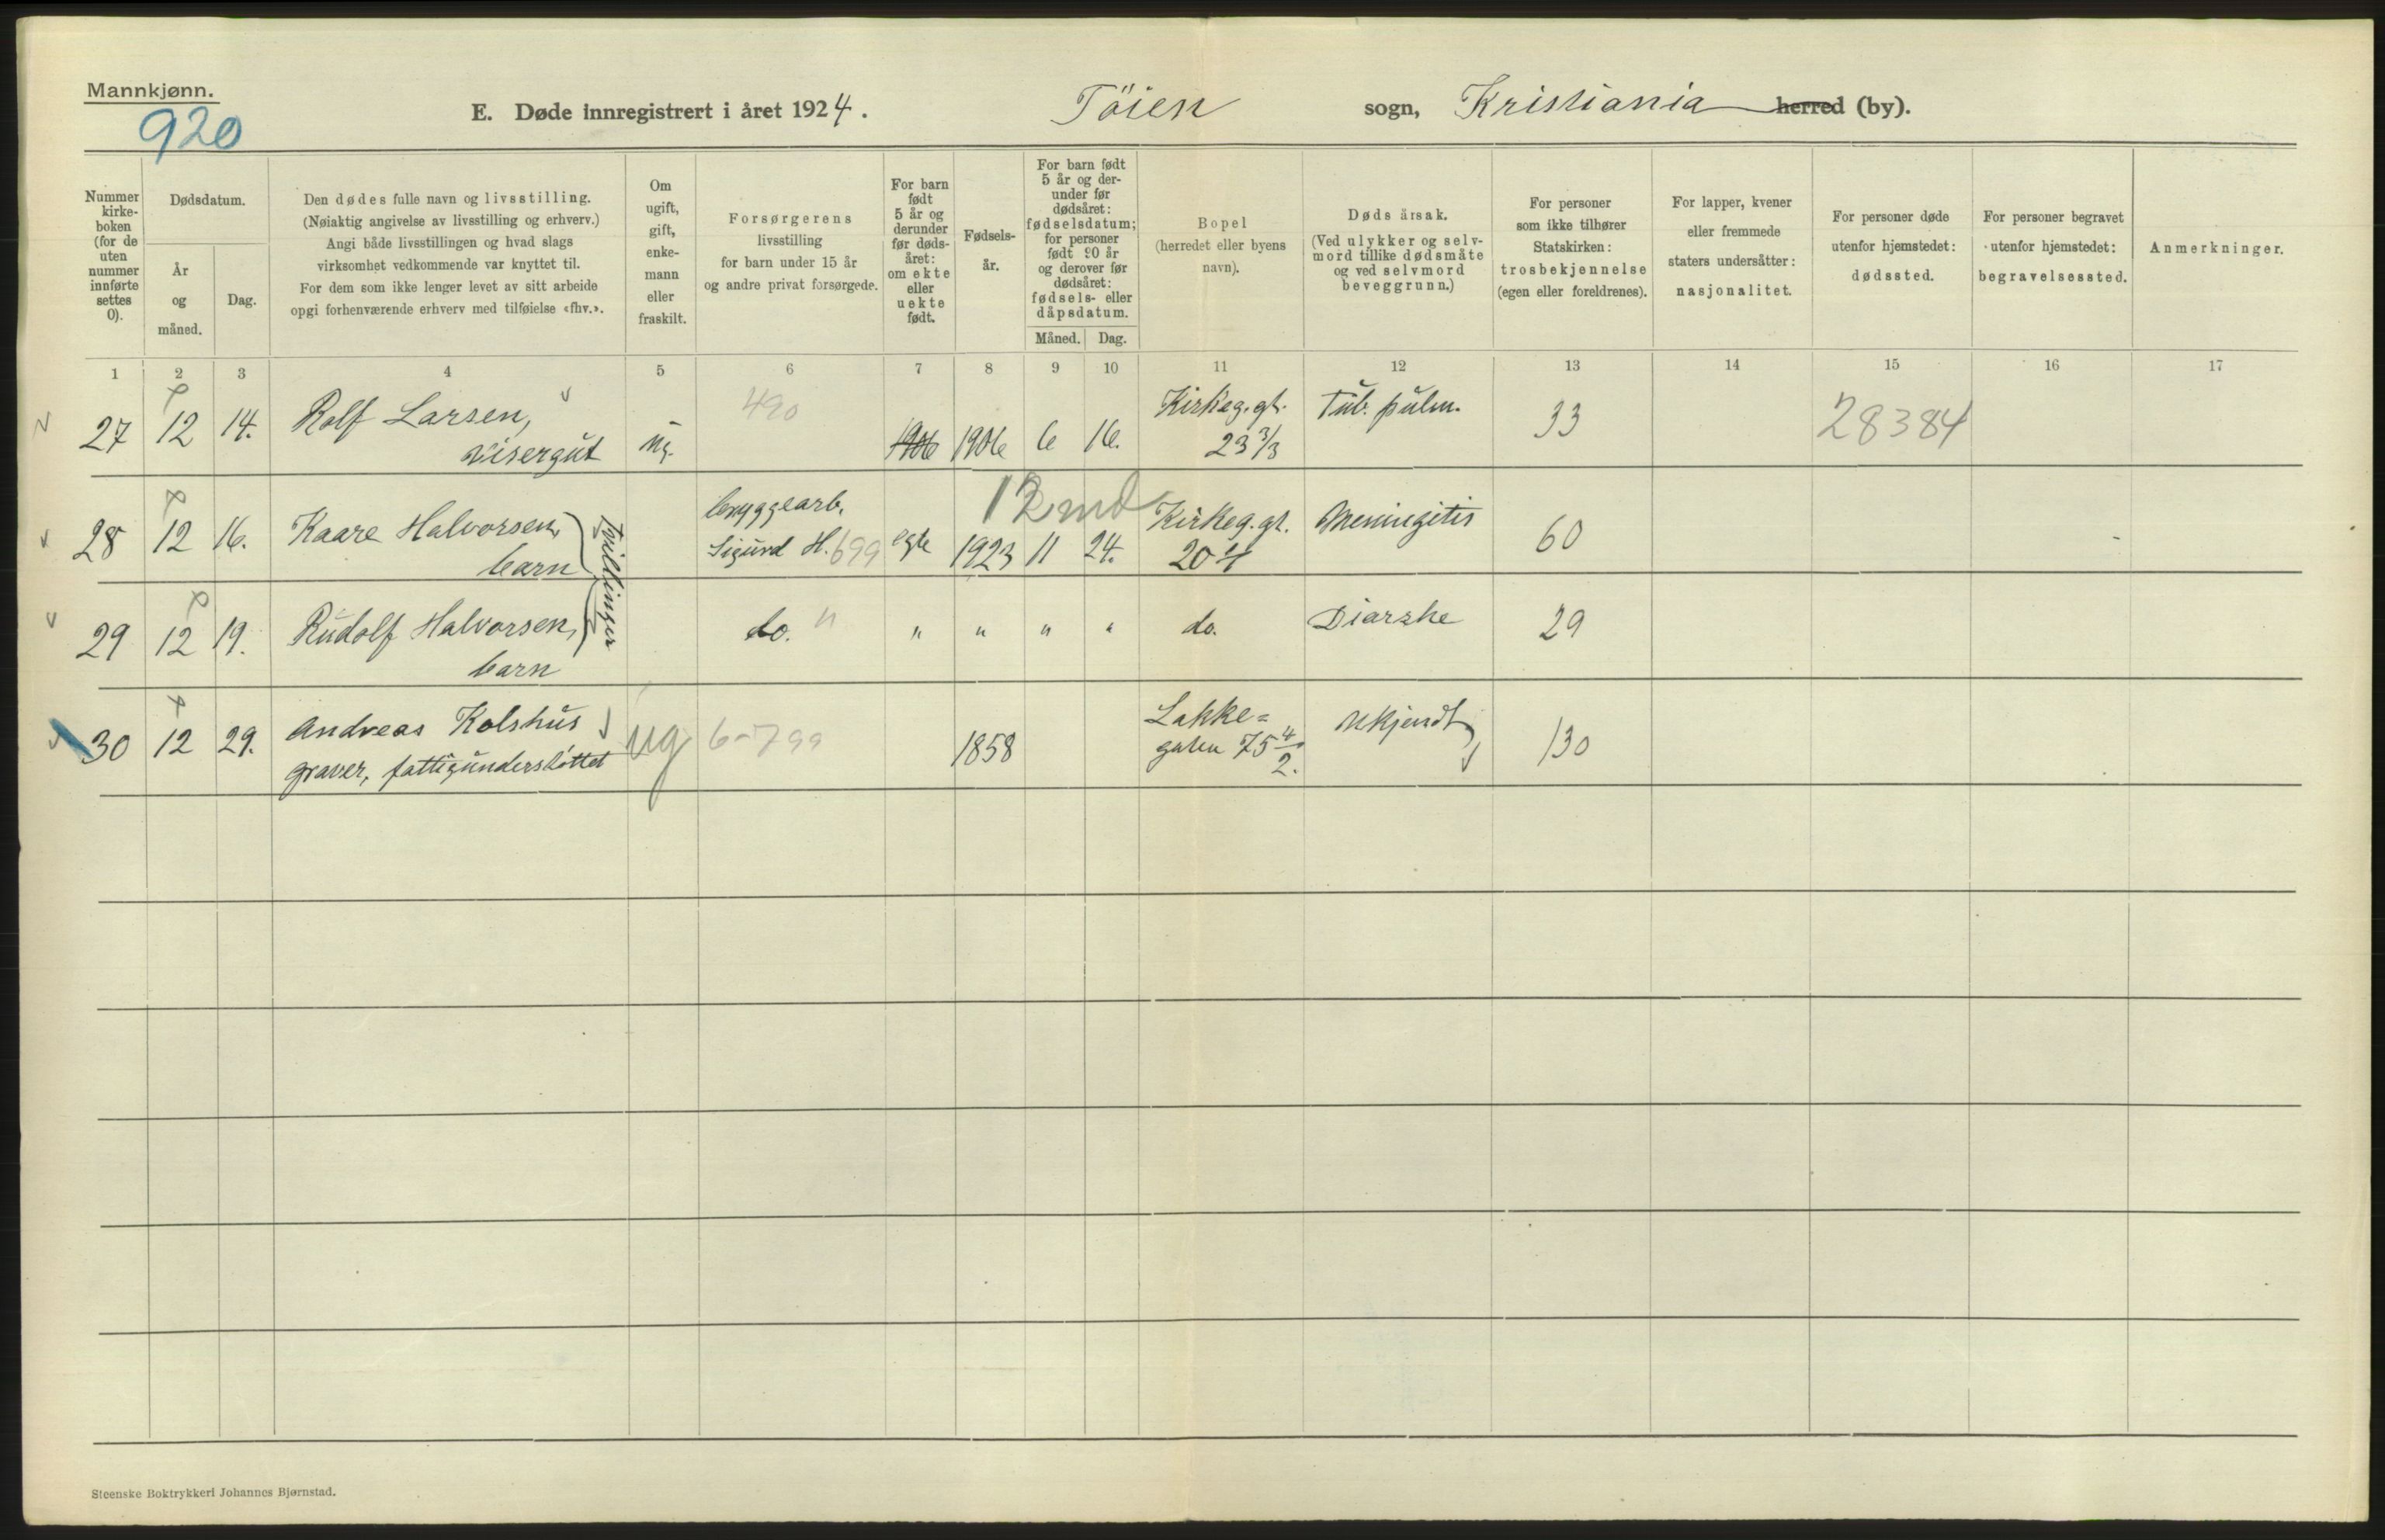 Mannkjønn.
920
E. Døde innregistrert i året 1924.
Töien sogn, Kristiania herred (by).
Nummer kirke-boken (for de uten nummer innførte settes 0).
Dødsdatum.
År og måned.
Dag.
Den dødes fulle navn og livsstilling.
(Nøiaktig angivelse av livsstilling og erhverv.)
Angi både livsstillingen og hvad slags
virksomhet vedkommende var knyttet til.
For dem som ikke lenger levet av sitt arbeide
opgi forhenværende erhverv med tilføielse «fhv.».
Om ugift, gift, enke-mann eller fraskilt.
Forsørgerens
livsstilling
for barn under 15 år
og andre privat forsørgede.
For barn født 5 år og derunder før døds-året: om ekte eller uekte født.
Fødsels-år.
For barn født 5 år og der-under før dødsåret: fødselsdatum; for personer født 90 år og derover før dødsåret: fødsels- eller dåpsdatum.
Måned. Dag.
Bopel
(herredet eller byens navn).
Dødsårsak.
(Ved ulykker og selv-mord tillike dødsmåte og ved selvmord beveggrunn.)
For personer
som ikke tilhører
Statskirken:
trosbekjennelse
(egen eller foreldrenes).
For lapper, kvener
eller fremmede
staters undersåtter:
nasjonalitet.
For personer døde
utenfor hjemstedet:
dødssted.
For personer begravet
utenfor hjemstedet:
begravelsessted.
Anmerkninger.
1 2 3 4 5 6 7 8 9 10 11 12 13 14 15 16 17
27 12 14. Rolf Larsen,
visergut
ug. 490 1906 1906 6 16. Kirkeg.gt.
23 3/3
Tub. pulm. 33 28384
28 12 16. Kaare Halvorsen,
barn
Tvillinger
bryggearb.
Sigurd H. 699 egte 12 md
1923 11 24. Kirkeg.gt.
20 4
Meningitis 60
29 12 19. Rudolf Halvorsen,
barn
do. " " " " " do. Diarrhe 29
30 12 29. Andreas Kolshus
graver, fattigunderstöttet
ug 6-799 1858 Lakke=
gaten 75 4/2.
Ukjendt 130
Steenske Boktrykkeri Johannes Bjørnstad.